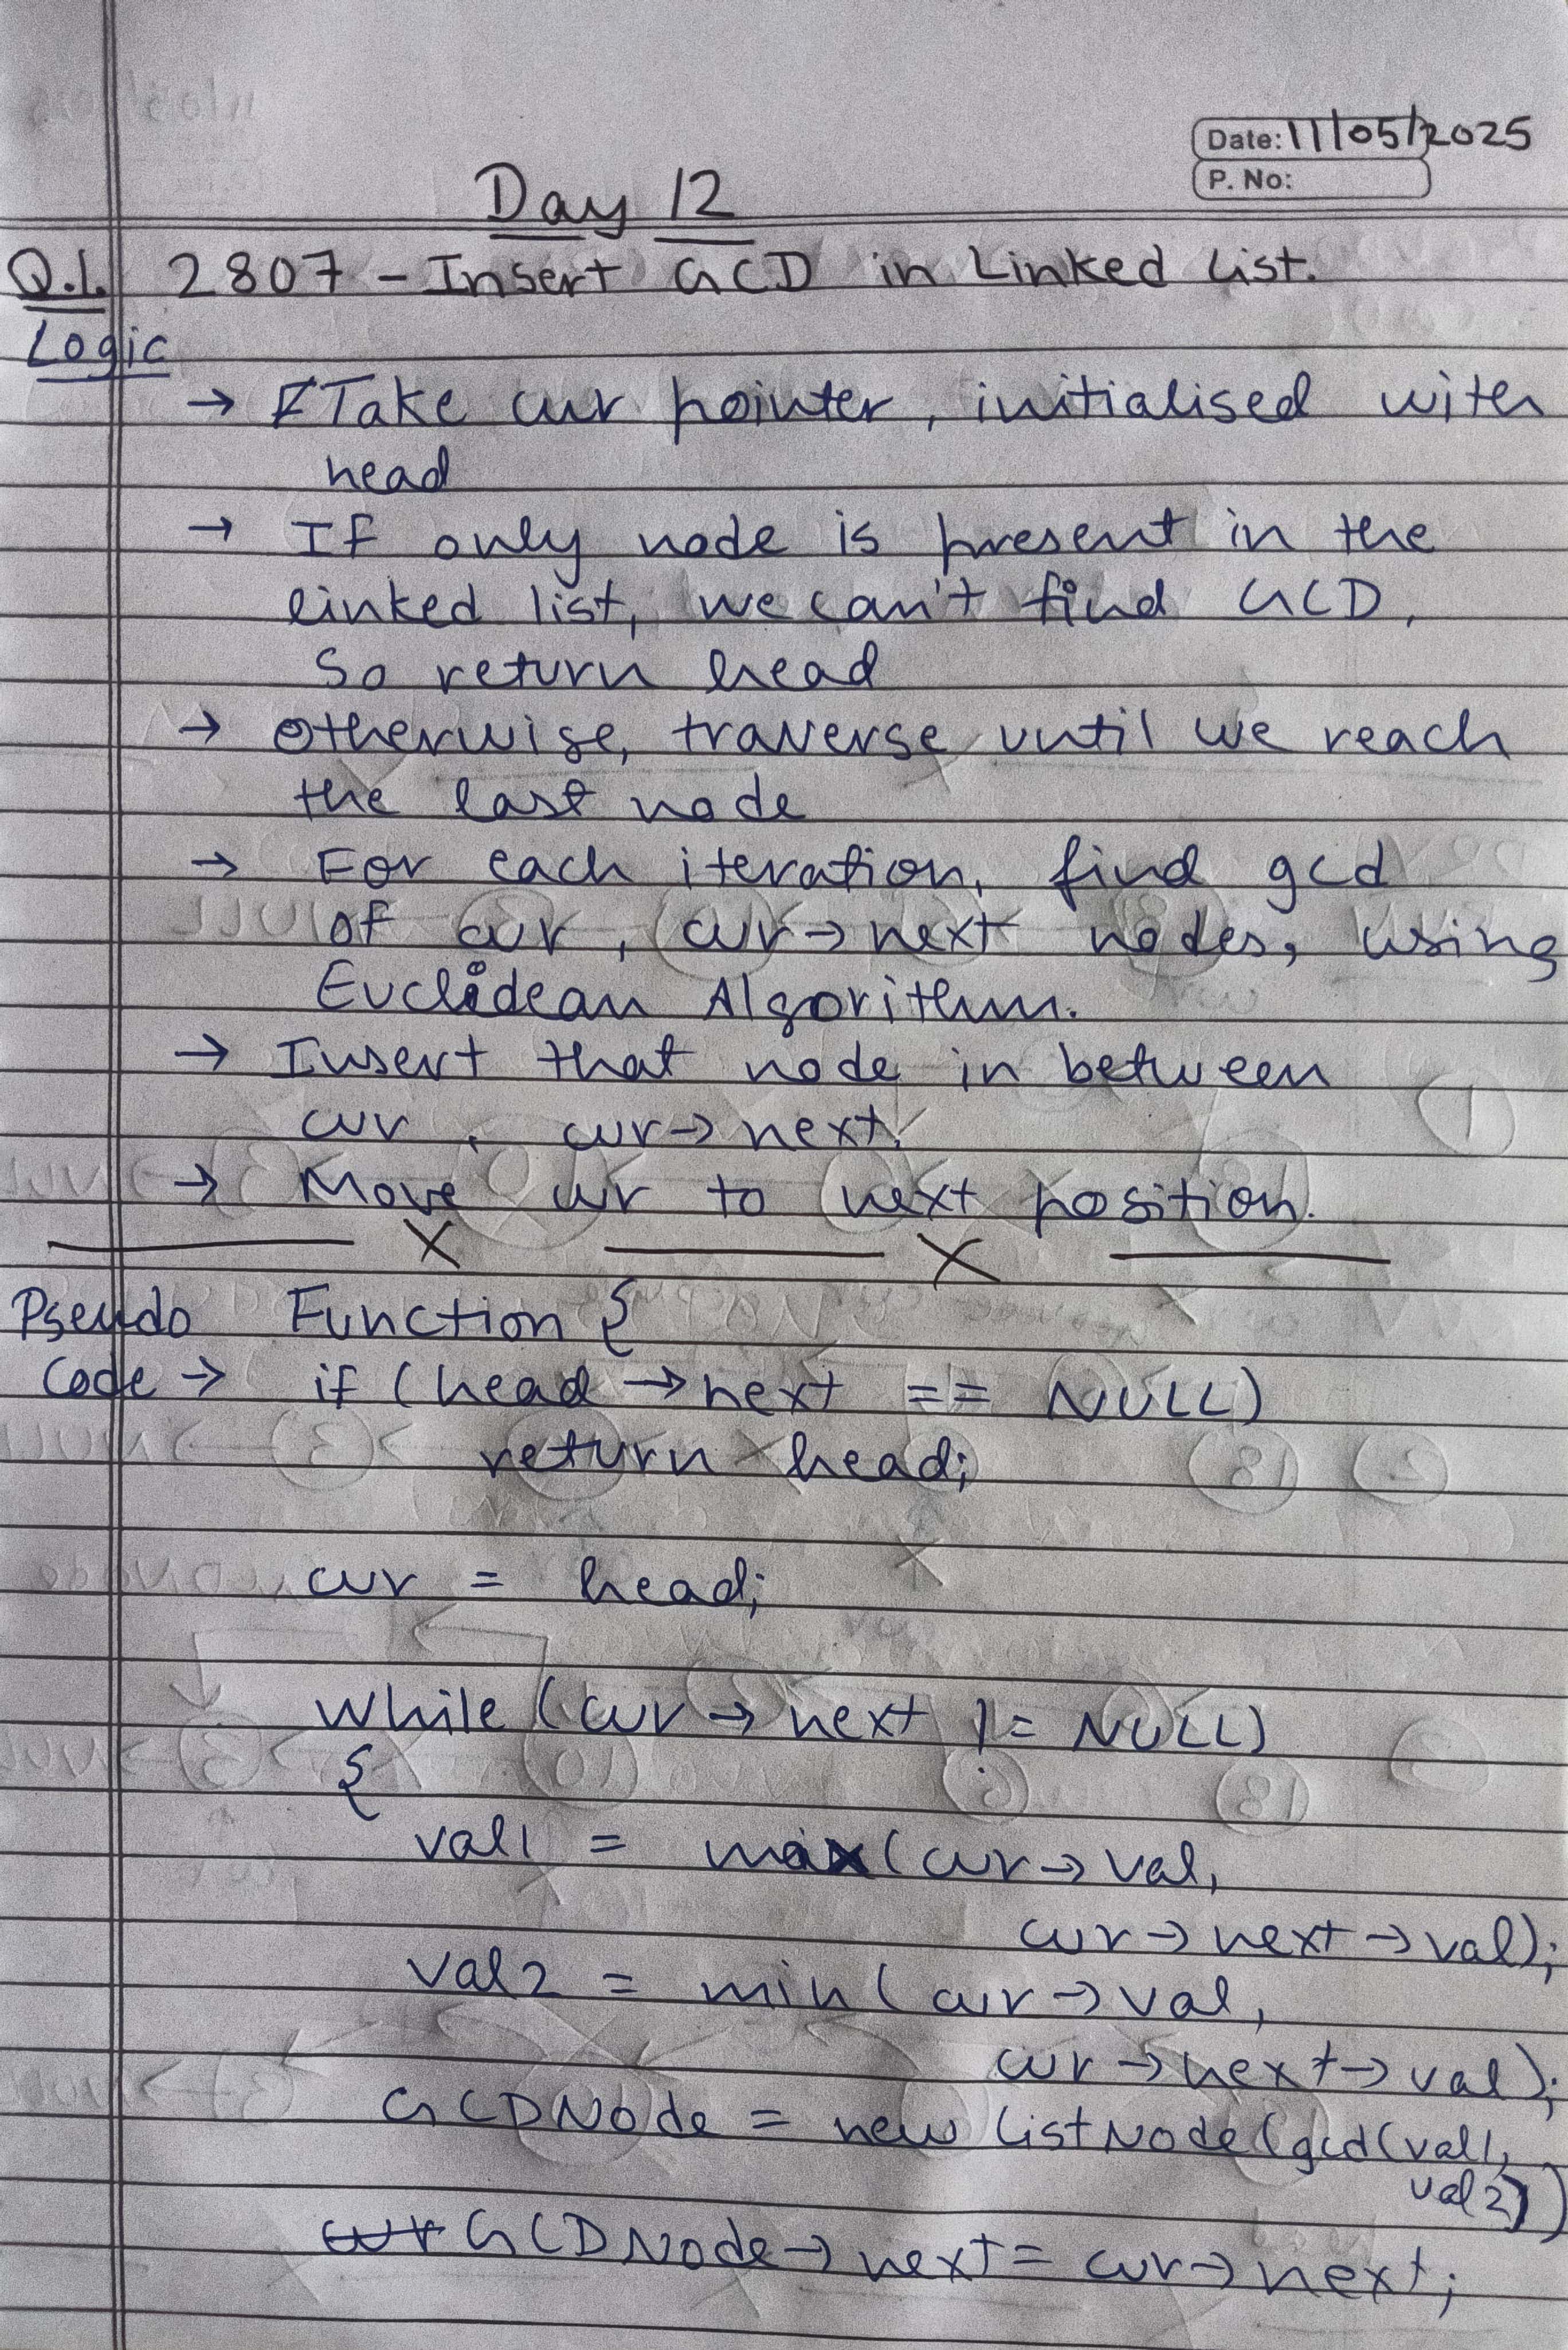 Date: 11/05/2025
P. No:
Day 12
Q.1. 2807 - Insert GCD in Linked List.
Logic
→ Take cur pointer, initialised with
head
→ If only node is present in the
linked list, we can't find GCD,
So return head
→ Otherwise, traverse until we reach
the last node
→ For each iteration, find gcd
of cur, cur→next nodes, using
Euclidean Algorithm.
→ Insert that node in between
cur, cur→next.
→ Move cur to next position.
Pseudo Function {
Code → if (head→next == NULL)
return head;
cur = head;
while (cur→next != NULL)
{
val1 = max(cur→val,
cur→next→val);
val2 = min(cur→val,
cur→next→val);
GCDNode = new ListNode(gcd(val1,
val2))
cur GCDNode→next = cur→next;